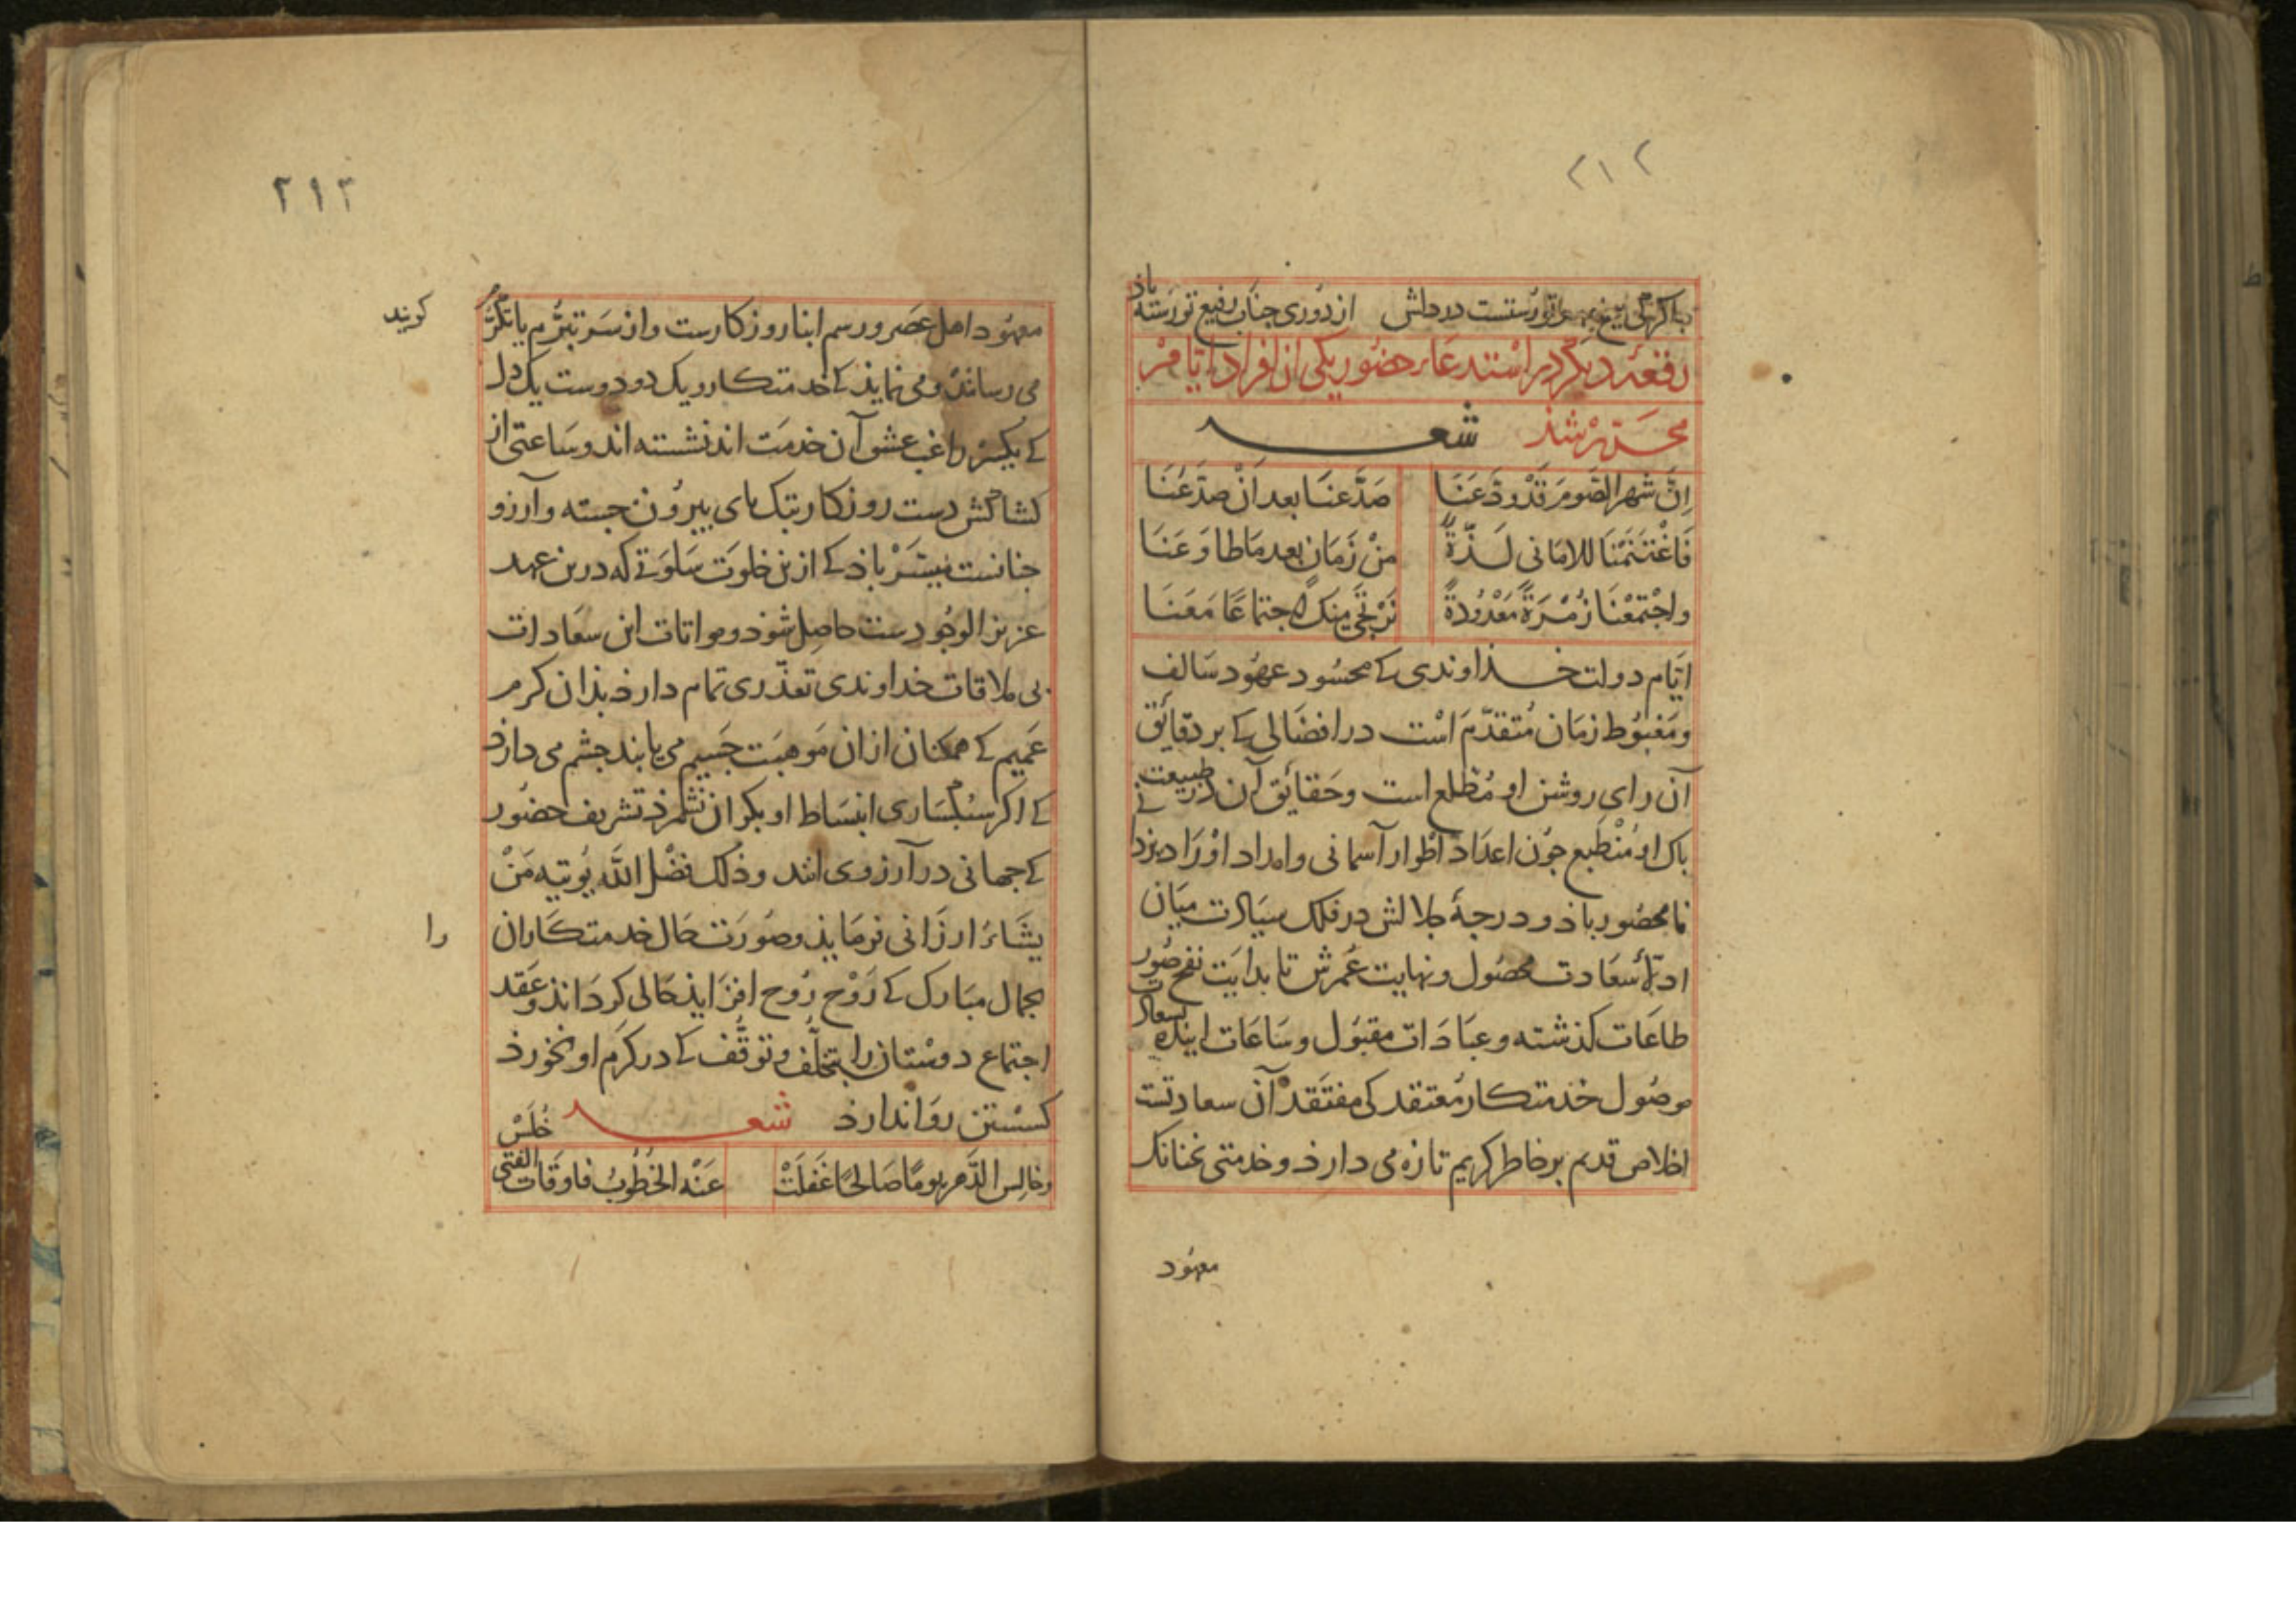 ٢١٢
از دوری جناب رفیع تو رسته باذ
رقعهٔ دیکر در استدعاء حضور یکی از افراد ایام
محرّر شذ شعر
اِنَّ شهر الصَّومِ قَدْ وَدَّعَنَا صَدَّعنَا بعد اَنْ صدَّعْنَا
فَاغْتَنَمْنَا للامَانی لَذّةً مِنْ زَمَانٍ بعد مَا طاوَعَنَا
واجْتَمَعْنَا زُمْرَةً مَعْدُودَةً نَرْتَجَی مِنکَ اجتماعًا مَعَنَا
ایّام دولت خذاوندی کے محسُود عهُود سَالف
ومَغبُوط زمَان مُتقدّم اسْت در افضَالی کے بر دقایق
آن رای روشن او مُطّلع است وحَقائق آن در طبیعت
باک او مُنْطَبع جُون اعدَاد اطْوار آسمانی وامداد اوْرَاد یزدانی
نامحصُور باذ ودرجهٔ جلالش در فلک سیَادت میَان
ادلّهٔ سعَادت محصُول ونهایت عُمرش تا بدایَت نفخ صُور
طاعَات کذشته وعبَادَات مقبَول وسَاعَات اینده
موصُول خذمتکار مُعتقد کی مفتَقد آن سعادتست
اخلاص قدیم بر خاطر کریم تازه می دارذ وخدمتی نخنانک
معهُود
٢١٣
معهُود اهل عصَر ورسم ابنا روزکارست واز سَر تبرُّم یا تکرُّر
کویند
می رساند ومی نمایذ کے خدمتکار ویک دو دوست یک دل
آن خدمَت اند نشسته اند وسَاعتی از
کشاکش دست روزکار بتک بای بیرُون جسته وآرزو
جنانست کے ازین خلوَت سَلوتے که درین عهد
عزیز الوجُودست حاصِل شوذ ومواتات این سعادات
بی ملاقات خداوندی تعذّری تمام دارذ بذان کرم
عَمیم کے همکنان ازان مَوهبَت جَسیم می یابند جشم می دارذ
کے اکر سُبکسَاری انبسَاط او بکران نشمرذ تشریف حضُور
کے جهانی در آرزوی اند وذلک فضْل اللّه یُوتیه مَنْ
یشَاءُ ارزَانی فرمَایذ وصُورَت حَال خدمتکَاران
را
بجمال مبَارک کے رَوْح رُوح افزَایذ حَالی کردَانذ وعَقد
اجتماع دوسْتان را بتخلّف وتوقُّف کے در کرَم او نخورذ
کسسْتن روَا ندارذ شعر
خُلَسْ
وخالِسِ الدَّهر یومًا صَالحًا غَفَلَتْ عَنْه الخطُوبُ فاوقَات الفتی